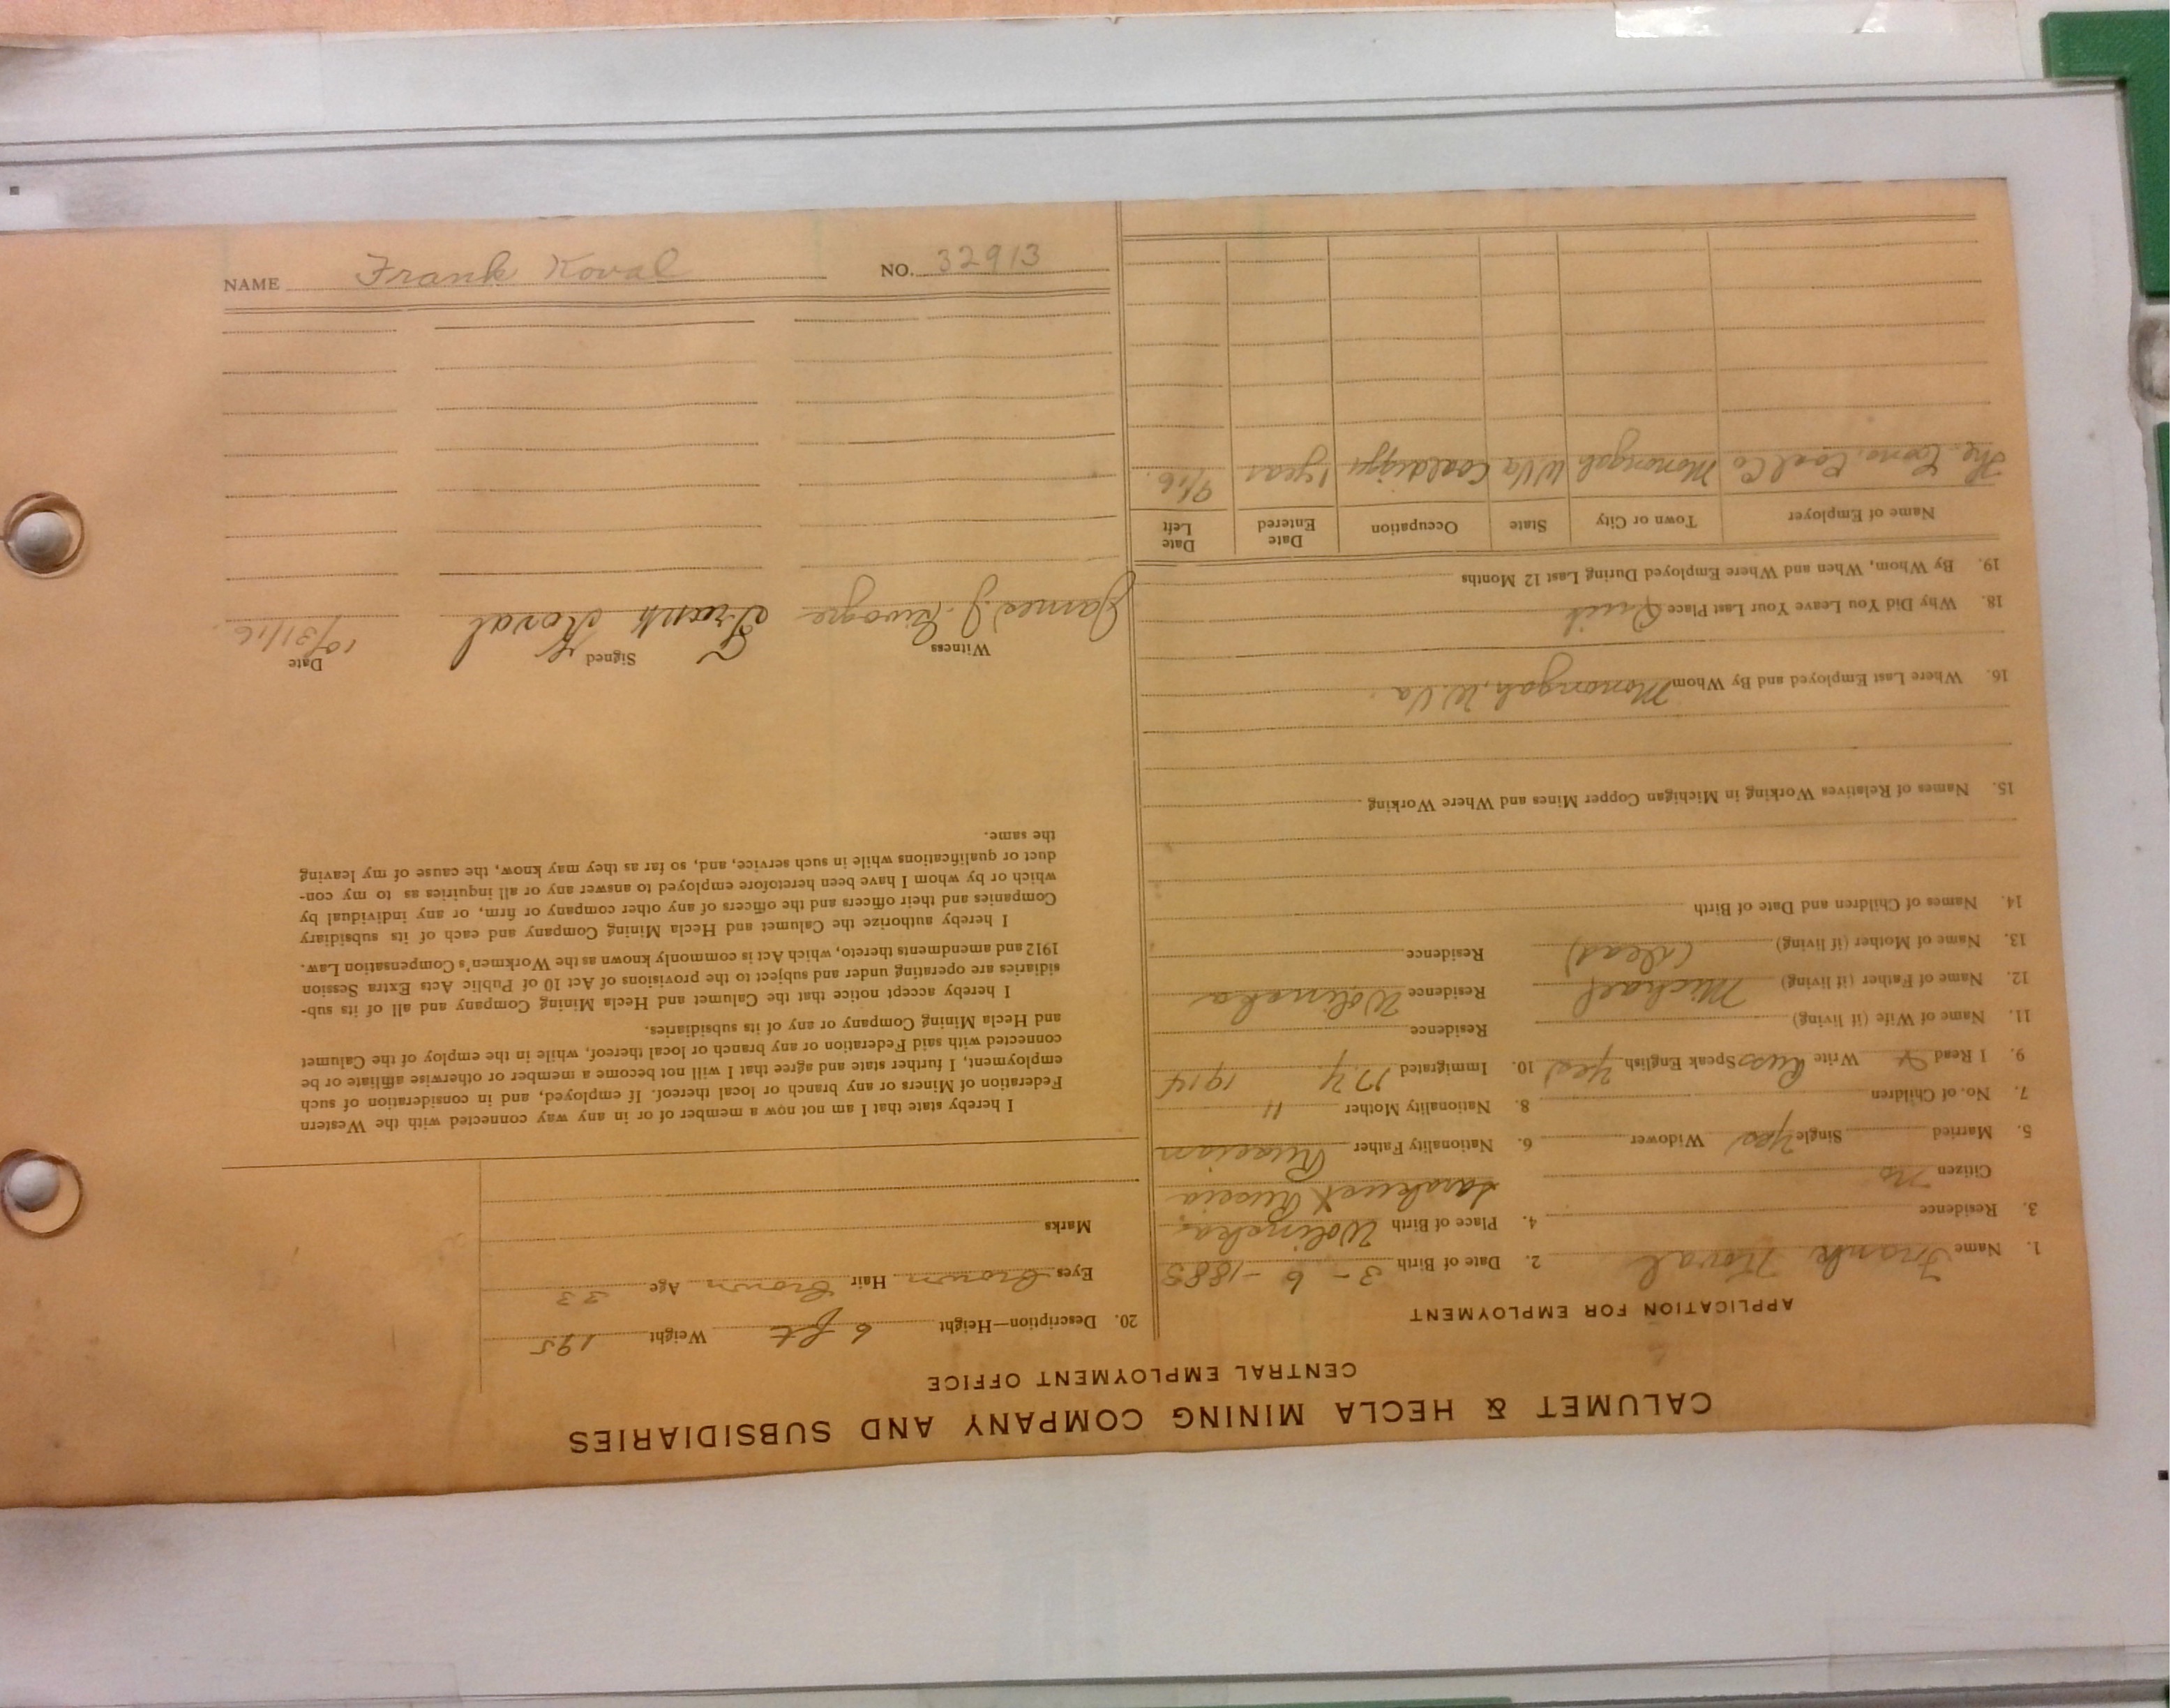 CALUMET & HECLA MINING COMPANY AND SUBSIDIARIES
CENTRAL EMPLOYMENT OFFICE
APPLICATION FOR EMPLOYMENT
1. Name Frank Koval 2. Date of Birth 3-6-1883
3. Residence 4. Place of Birth Wolinska,
Russia
Citizen no
5. Married Single Yes Widower 6. Nationality Father Russian
7. No. of Children 8. Nationality Mother "
9. I Read & Write Russ Speak English Yes 10. Immigrated N.Y 1914
11. Name of Wife (if living) Residence
12. Name of Father (if living) Michael Residence Wolinska
13. Name of Mother (if living) (dead) Residence
14. Names of Children and Date of Birth
15. Names of Relatives Working in Michigan Copper Mines and Where Working
16. Where Last Employed and By Whom Monongah, W. Va.
18. Why Did You Leave Your Last Place Quit
19. By Whom, When and Where Employed During Last 12 Months
Name of Employer Town or City State Occupation Date Entered Date Left
The Cons. Coal Co Monongah W Va Coaldigger 1 year 9/16.
20. Description—Height 6 ft Weight 195
Eyes Brown Hair Brown Age 33
Marks
I hereby state that I am not now a member of or in any way connected with the Western
Federation of Miners or any branch or local thereof. If employed, and in consideration of such
employment, I further state and agree that I will not become a member or otherwise affiliate or be
connected with said Federation or any branch or local thereof, while in the employ of the Calumet
and Hecla Mining Company or any of its subsidiaries.
I hereby accept notice that the Calumet and Hecla Mining Company and all of its sub-
sidiaries are operating under and subject to the provisions of Act 10 of Public Acts Extra Session
1912 and amendments thereto, which Act is commonly known as the Workmen's Compensation Law.
I hereby authorize the Calumet and Hecla Mining Company and each of its subsidiary
Companies and their officers and the officers of any other company or firm, or any individual by
which or by whom I have been heretofore employed to answer any or all inquiries as to my con-
duct or qualifications while in such service, and, so far as they may know, the cause of my leaving
the same.
Witness Signed Date
James J. Frank Koval 10/31/16
NAME Frank Koval NO. 32913